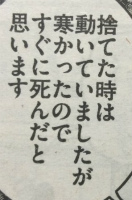 捨てた時は
動いていましたが
寒かったので
すぐに死んだと
思います